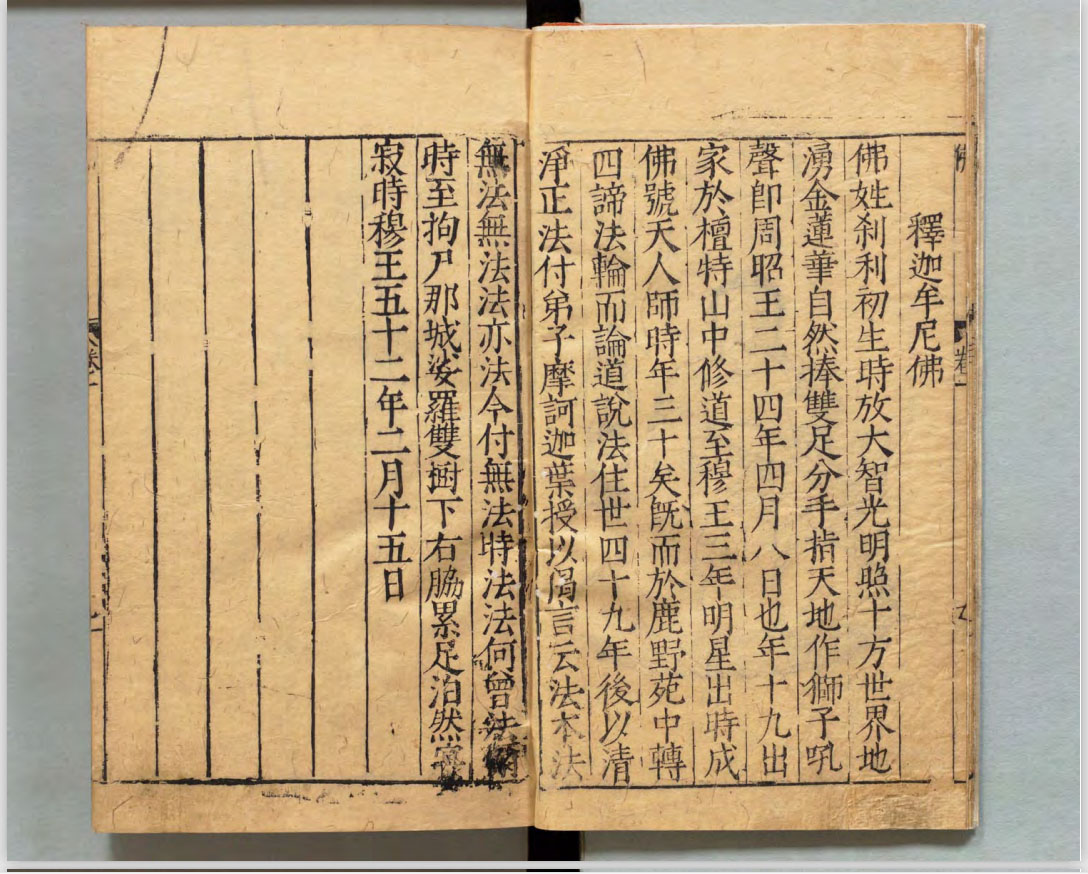 釋迦牟尼佛
佛姓剎利初生時放大智光明照十方世界地
湧金蓮華自然捧雙足分手指天地作獅子吼
聲卽周昭王二十四年四月八日也年十九出
家於檀特山中修道至穆王三年明星出時成
佛號天人師時年三十矣旣而於鹿野苑中轉
四諦法輪而論道說法住世四十九年後以清
淨正法付弟子摩訶迦葉授以偈言云法本法
無法無法法亦法今付無法時法法何曾法
時至拘尸那城娑羅雙樹下右脇累足泊然宴
寂時穆王五十二年二月十五日
卷一
卷一